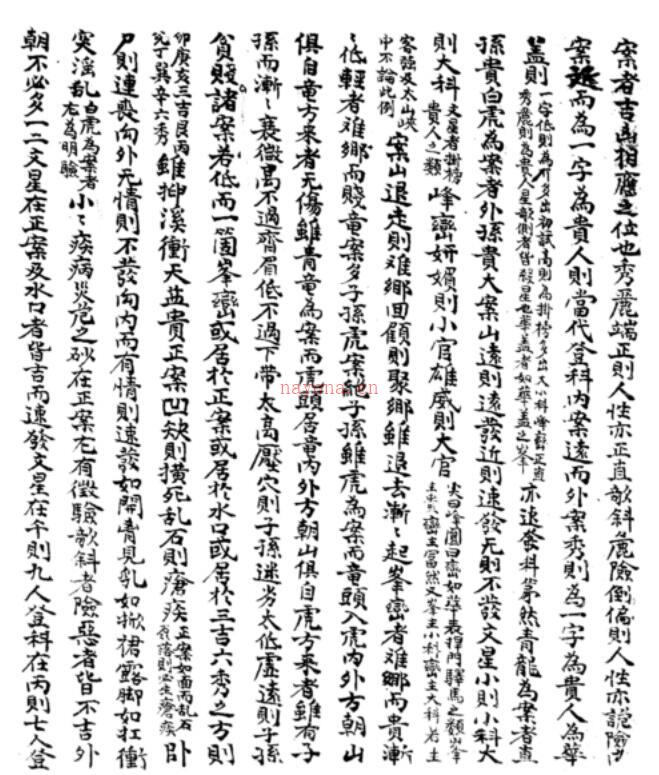 案者吉凶相應之位也秀麗端正則人性亦正直欹斜麁險倒傷則人性亦詭險內
案遠而為一字為貴人則當代登科內案遠而外案秀則為一字為貴人為華
盖則一字低則為多出初試高則為掛榜多出大小科峰巒正直秀麗則為貴人星欹側者皆發星也華盖者如華盖之峯亦速發科第然青龍為案者直
孫貴白虎為案者外孫貴大案山遠則遠發近則速發无則不發文星小則小科大
則大科文星者掛榜貴人之類峰巒妍媚則小官雄威則大官尖曰峰圓曰巒如華表捍門驛馬之類峯主巒主當然文峯主小科巒主大科若主
客強及太山峽中不論此例案山退走則难鄉回顧則聚鄉雖退去漸〻起峯巒者难鄉而貴漸
〻低輕者难鄉而賤竜案多子孫虎案絶子孫雖虎為案而竜頭入虎內外方朝山
俱自竜方来者无傷雖青竜為案而虎頭居竜內外方朝山俱自虎方来者雖有子
孫而漸〻衰微高不過齊眉低不過下帶太高壓穴則子孫迷劣太低虛遠則子孫
貧賤諸案若低而一箇峯巒或居於正案或居於水口或居於三吉六秀之方則
卯庚亥三吉艮丙兊丁巽辛六秀雖抑溪衝天盐貴正案凹缺則橫死乱石則瘡疾正案如面而乱石磊落則必生瘡疾卧
尸則連喪向外无情則不發向內而有情則速發如開胷見乳如掀裙露脚如扛衝
突淫乱白虎為案者尤為明驗小〻疾病災厄之砂在正案尤有徵驗欹斜者險惡者皆不吉外
朝不必多一二文星在正案及水口者皆吉而速發文星在午則九人登科在丙則七人登
nayona.cn